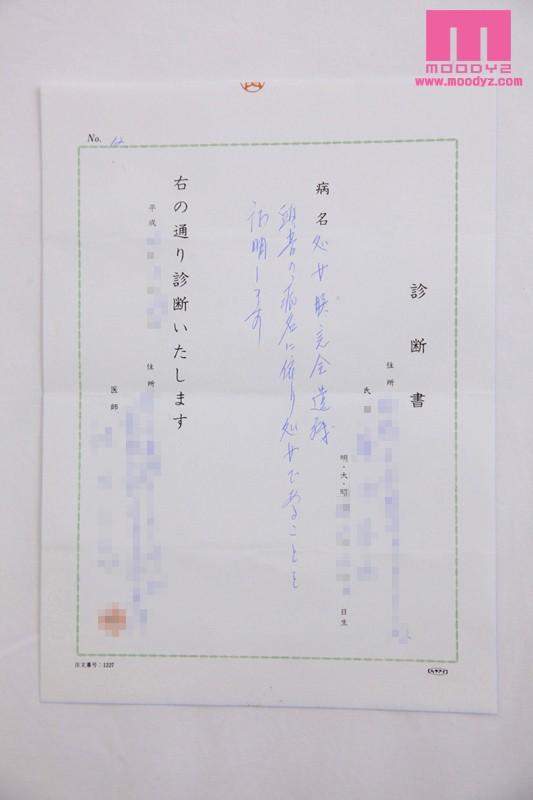 MOODYZ
www.moodyz.com
No. 12
診断書
住所
氏
明・大・昭
日生
病名 処女膜完全遺残
頭書の病名に依り処女であることを
証明します
右の通り診断いたします
平成
住所
医師
注文番号：1227